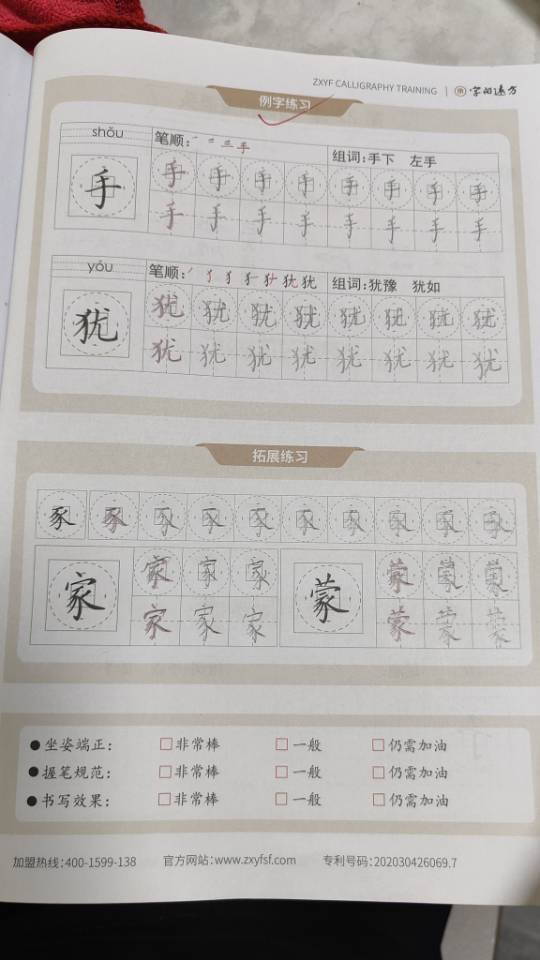 ZXYF CALLIGRAPHY TRAINING | 字的远方
例字练习
shǒu
笔顺: 手
组词:手下 左手
手 手 手 手 手 手 手 手 手
手 手 手 手 手 手 手 手
yóu
笔顺: 犹
组词:犹豫 犹如
犹 犹 犹 犹 犹 犹 犹 犹 犹
犹 犹 犹 犹 犹 犹 犹 犹
拓展练习
豕 豕 豕 豕 豕 豕 豕 豕 豕 豕
家 家 家 家 蒙 蒙 蒙 蒙
家 家 家 蒙 蒙 蒙
●坐姿端正: □非常棒 □一般 □仍需加油
●握笔规范: □非常棒 □一般 □仍需加油
●书写效果: □非常棒 □一般 □仍需加油
加盟热线:400-1599-138 官方网站:www.zxyfsf.com 专利号码:202030426069.7